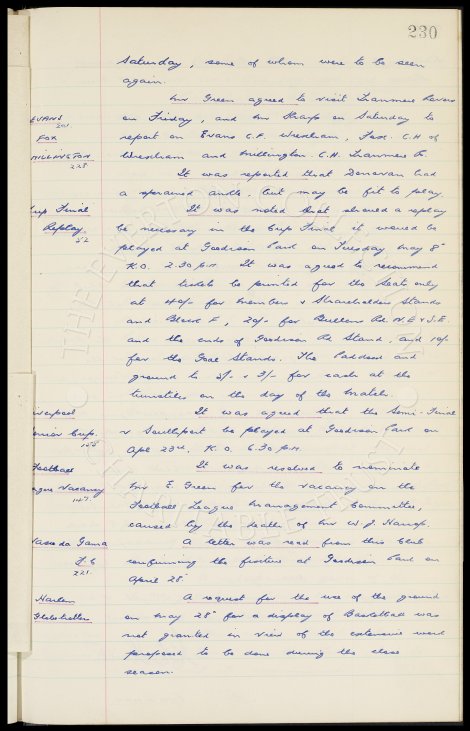 230
Saturday, some of whom were to be seen
again.
Mr Green agreed to visit Tranmere Rovers
EVANS
201
on Friday, and Mr Sharp on Saturday to
FOX
report on Evans C.F. Wrexham, Fox C.H of
MILLINGTON
228
Wrexham and Millington C.H. Tranmere R.
It was reported that Donovan had
a sprained ankle, but may be fit to play.
Cup Final
It was noted that should a replay
Replay.
52
be necessary in the Cup Final it would be
played at Goodison Park on Tuesday May 8th
K.O. 2.30 p.m. It was agreed to recommend
that tickets be printed for the Seats only
at 40/- for Members & Shareholders Stands
and Block F, 20/- for Bullens Rd. N.E & S.E.
and the ends of Goodison Rd Stand, and 10/-
for the Goal Stands. The Paddock and
ground to 5/- & 3/- for cash at the
turnstiles on the day of the match.
Liverpool
It was agreed that the Semi-Final
Senior Cup.
v Southport be played at Goodison Park on
Apl 23rd, K.O. 6.30 p.m.
Football
It was resolved to nominate
League Vacancy
147.
Mr E Green for the vacancy on the
Football League Management Committee,
caused by the death of Mr W. J. Harrop.
Vasco da Gama
A letter was read from this Club
F.C
221.
confirming the fixture at Goodison Park on
April 28th
Harlem
A request for the use of the ground
Globetrotters
on May 28th for a display of Basketball was
not granted in view of the extensive work
proposed to be done during the close
season.